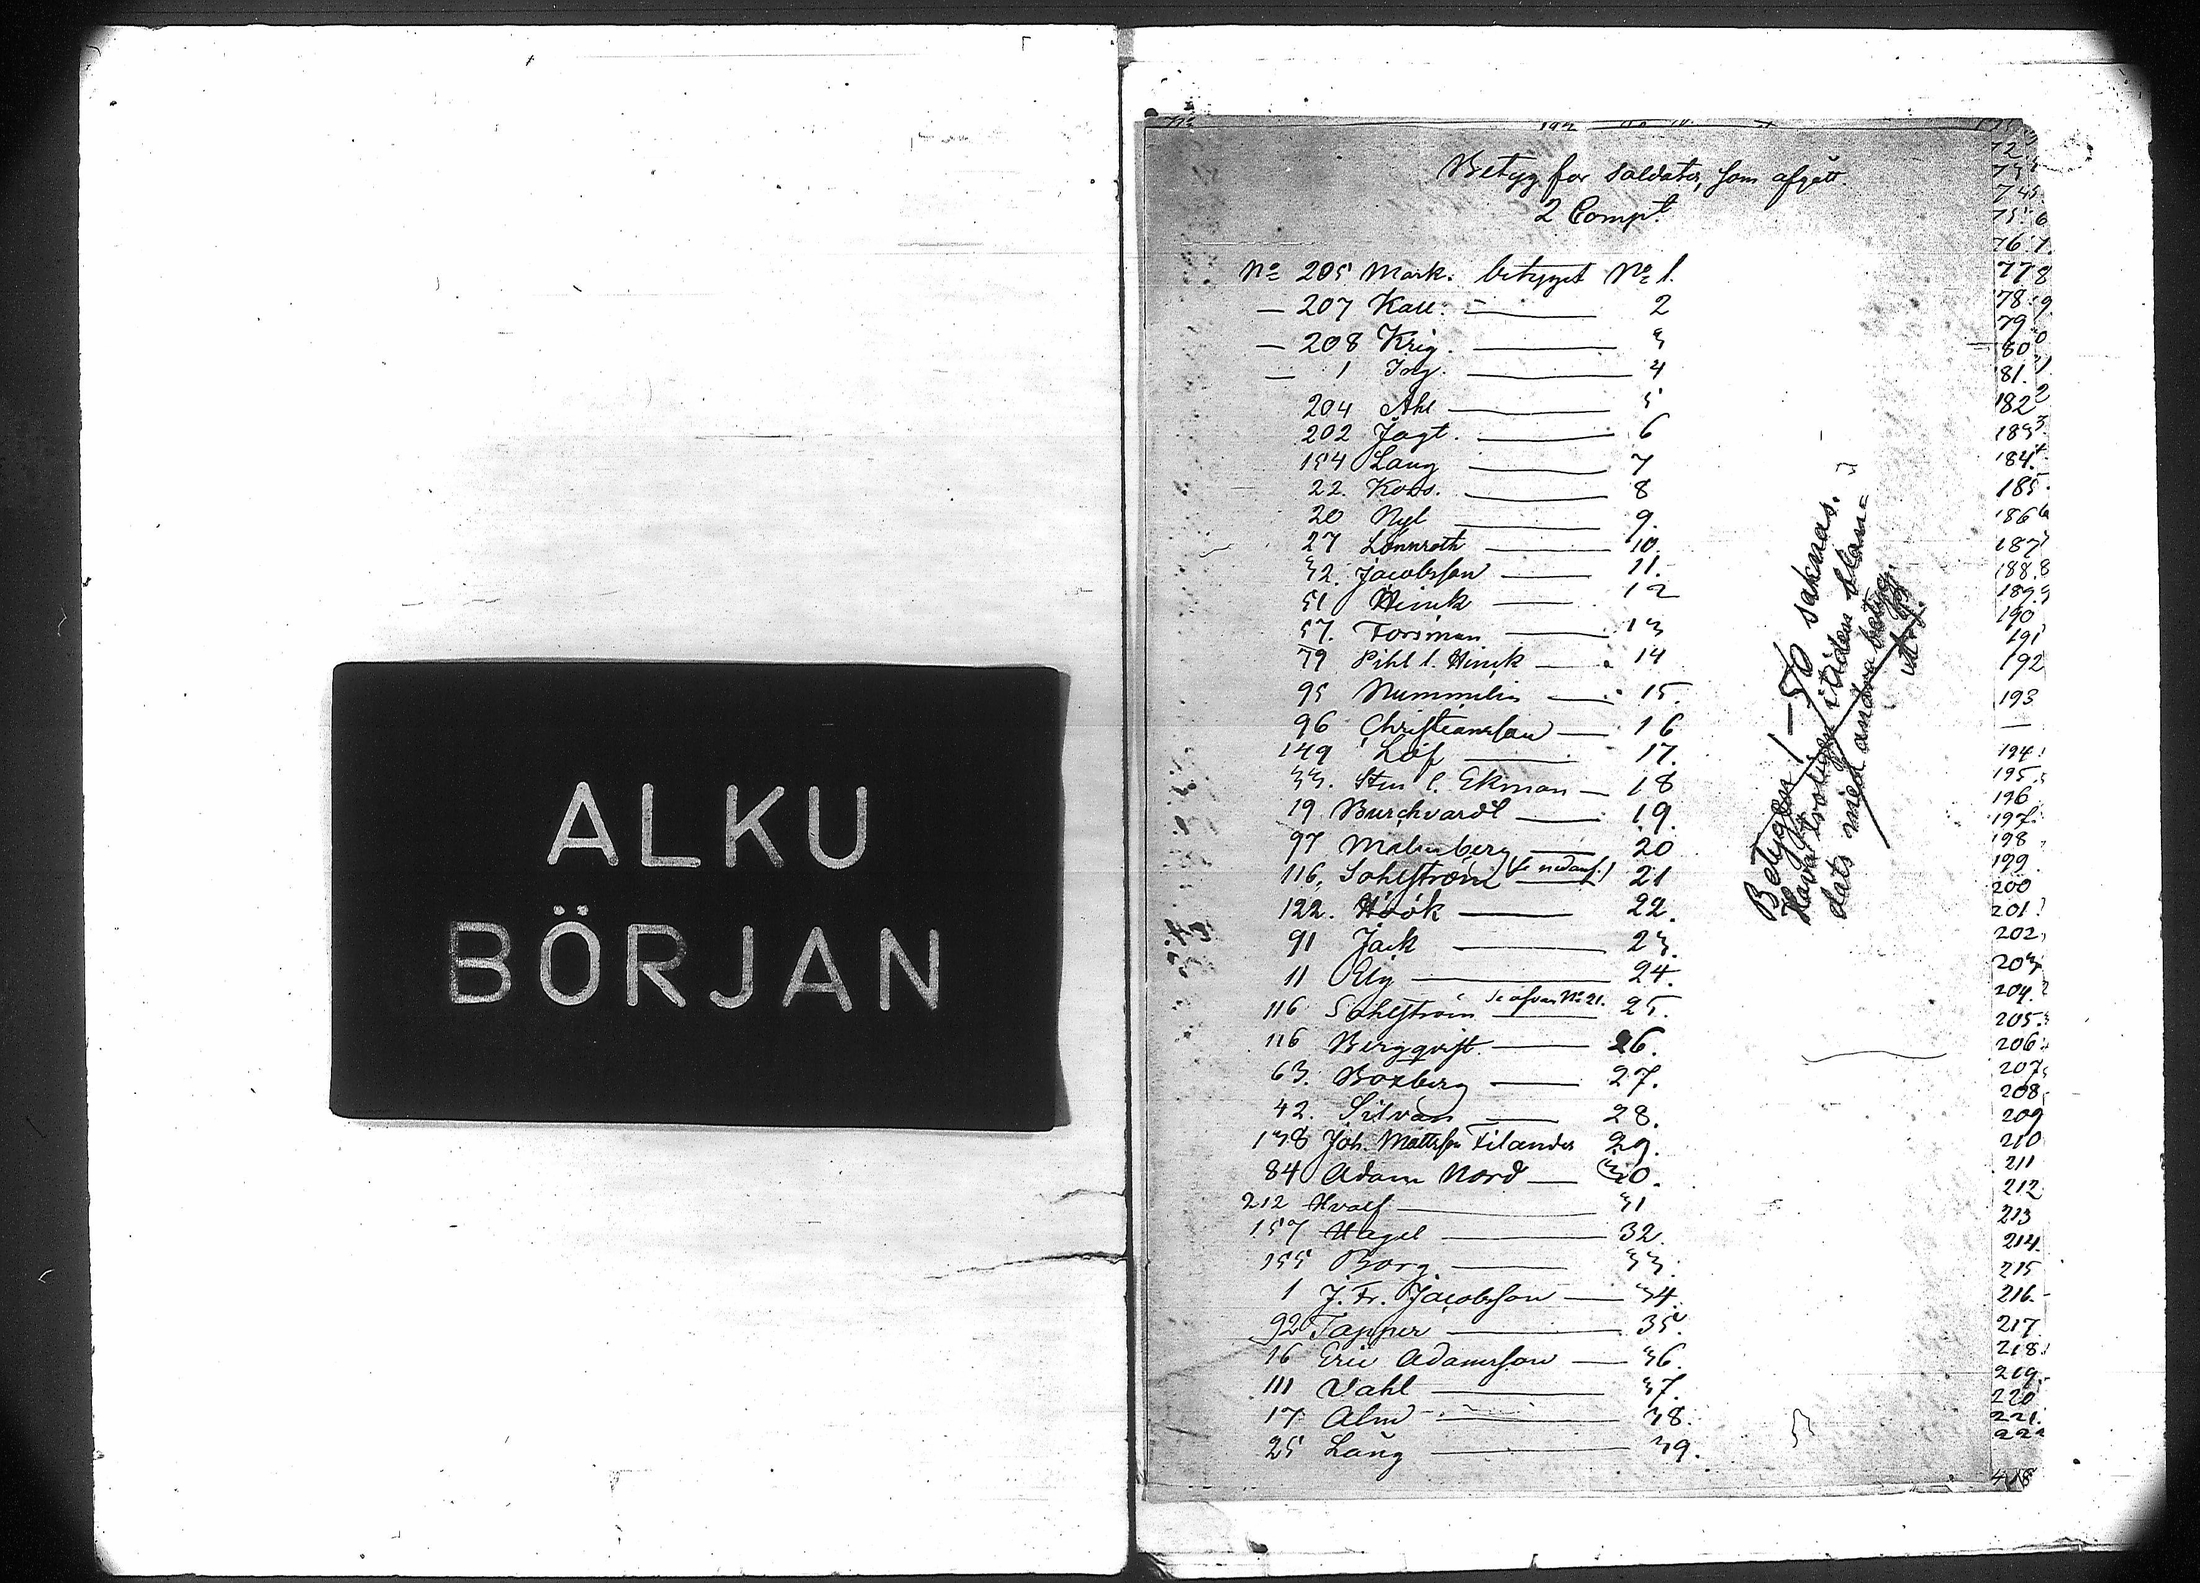 ALKU
BÖRJAN
Betyg for soldater, som afgått.
2 Compt.
No 205 Mark. betyget No 1.
— 207 Kall. — 2
— 208 Krig. — 3
— 1 — 4
204 Ahl — 5
202 Jagt. — 6
154 Lang — 7
22. — 8
20 Nyl — 9.
27 Lönnroth — 10.
32. Jacobsson — 11.
51 Hinrik — 12
57. Forsman — 13
79 Pihl l. Hinrik — 14
95 Nummelin — 15.
96 Christiansson — 16
149 Löf — 17.
33. Sten l. Ekman — 18
19 Burchvardt — 19.
97 Malmberg — 20
116, Sohlström 21
122. Höök — 22.
91 Jack — 23.
11 Elg — 24.
116 Sohlström se ofvan No 21. 25.
116 Bergqvist. — 26.
63. Boxberg — 27.
42. Silvan — 28.
138 Joh. Mattsson Filander 29.
84 Adam Nord — 30.
212 Hvalf — 31
157 Hagel — 32.
155 Borg — 33.
1 J. Fr. Jacobsson — 34.
92 Tapper — 35.
16 Eric Adamsson — 36.
111 Dahl — 37.
17 Alm — 38.
25 Lang — 39.
Betygen 1–56 saknas.
Hava troligen i tiden blan-
dats med andra betyg.
72.
73
74
75.
76.
77
78.
79
80
81.
182
183
184.
185
186
187
188.
189
190
191
192
193
—
194
195
196
197
198
199
200
201
202
203
204
205.
206
207
208
209
210
211
212
213
214
215
216
217
218
219
220
221
222